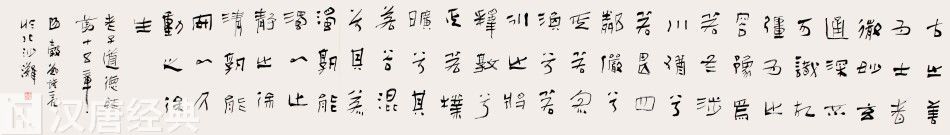 古之善
為士者
微妙玄
通深不
可識故
彊為之
容豫焉
若冬涉
川猶兮
若畏四
鄰儼兮
其若客
渙兮若
冰之將
釋敦兮
其若樸
曠兮其
若谷混
兮其若
濁孰能
濁以止
靜之徐
清孰能
安以久
動之徐
生
老子道德經
第十五章
於北沙灘
汉唐经典